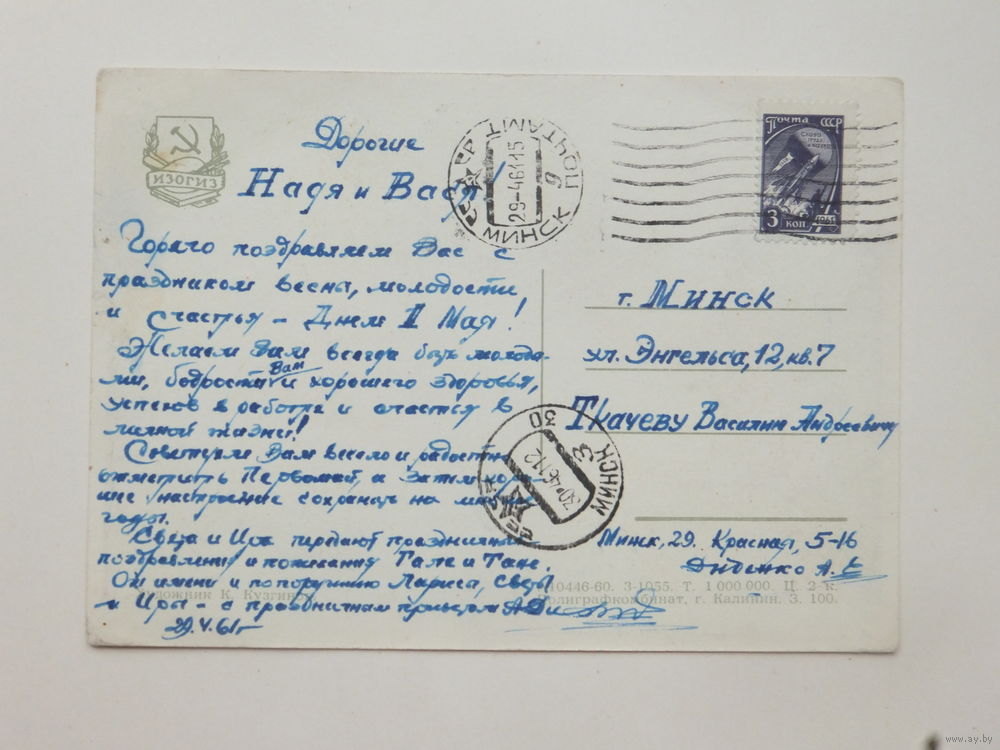 ИЗОГИЗ
Дорогие
Надя и Вася!
Горячо поздравляем Вас с
праздником весны, молодости
и счастья - Днем 1 Мая!
Желаем Вам всегда быть молоды-
ми, бодрости Вам и хорошего здоровья,
успехов в работе и счастья в
личной жизни!
Советуем Вам весело и радостно
отметить Первомай, а затем хоро-
шее настроение сохранять на многие
годы.
Света и Ира передают праздничные
поздравления и пожелания Гале и Тане.
От имени и по поручению Ларисы, Светы
и Иры - с праздничным приветом А.Ди
29.V.61г
Художник К. Кузгинов
МИНСК ПОЧТАМТ 9
29-46115
Почта СССР
3 коп
1961
г. Минск
ул. Энгельса, 12, кв. 7
Ткачеву Василию Андреевичу
МИНСК 30
30-46112
3
Минск, 29. Красная, 5-16
Диденко А. Е
10446-60. 3-1955. Т. 1 000 000. Ц. 2 к.
Полиграфкомбинат, г. Калинин. З. 100.
www.ay.by